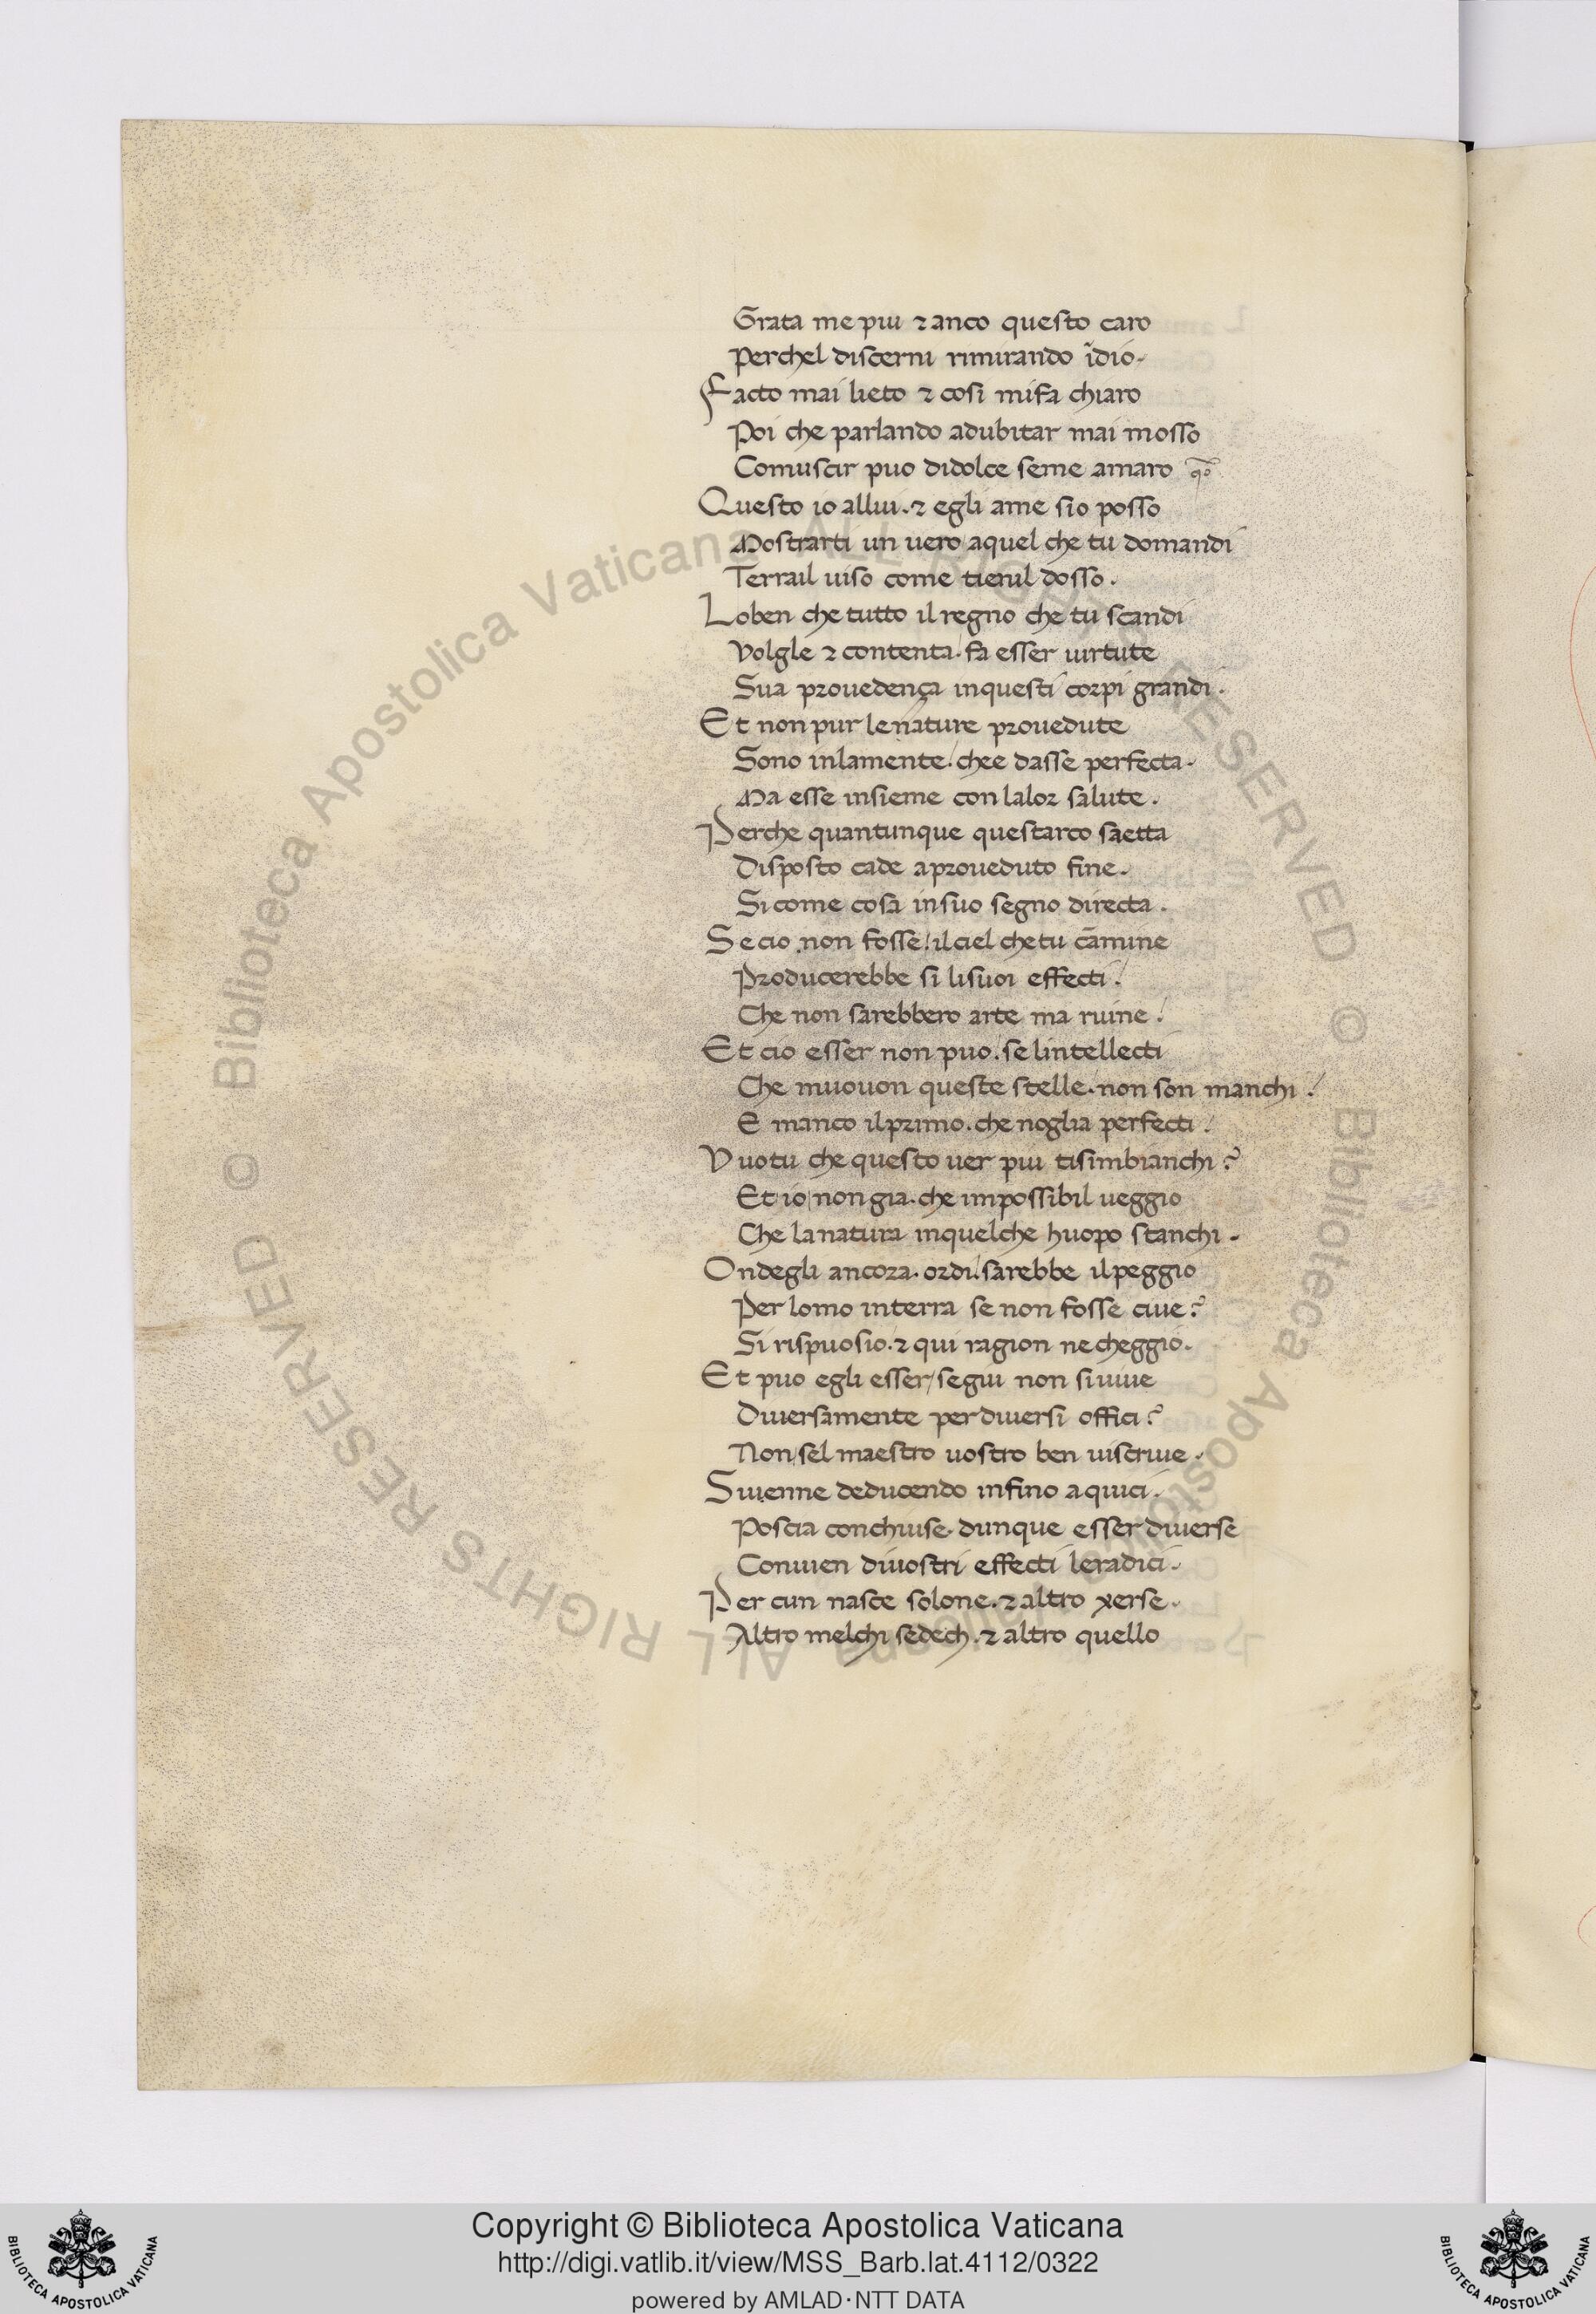 Grata me piu ⁊ anco questo caro
Perchel discerni rimirando ĩdio.
Facto mai lieto ⁊ cosi mi fa chiaro
Poi che parlando adubitar mai mosso
Comuscir puo didolce seme amaro
Questo io allui. ⁊ egli ame sio posso
Mostrarti un uero aquel che tu domandi
Terrail uiso come tienil dosso.
Loben che tutto il regno che tu scandi
Volgle ⁊ contenta. fa esser uirtute
Sua prouedença inquesti corpi grandi.
Et non pur lenature prouedute
Sono inlamente. chee dasse perfecta.
Ma esse insieme con lalor salute.
Perche quantunque questarco saetta
Disposto cade aproueduto fine.
Si come cosa in suo segno directa.
Se cio non fosse! il ciel che tu cãmine
Producerebbe si lisuoi effecti!
Che non sarebbero arte ma ruine!
Et cio esser non puo. se lintellecti
Che muouon queste stelle. non son manchi!
E manco il primo. che noglia perfecti!
Vuotu che questo uer piu tisimbianchi?
Et io non gia. che impossibil ueggio
Che lanatura inquelche huopo stanchi.
Ondegli ancora. ordi! sarebbe il peggio
Per lomo interra se non fosse ciue?
Si rispuosio. ⁊ qui ragion ne cheggio.
Et puo egli esser/ se giu non si uiue
Diuersamente per diuersi offici?
Non/ sel maestro uostro ben uiscriue.
Siuenne deducendo infino a quici.
Poscia conchiuse. dunque esser diuerse
Conuien diuostri effecti le radici.
Per cun nasce solone. ⁊ altro xerse.
Altro melchi sedech. ⁊ altro quello
© Biblioteca Apostolica Vaticana ALL RIGHTS RESERVED © Biblioteca Apostolica Vaticana ALL RIGHTS RESERVED
Copyright © Biblioteca Apostolica Vaticana
http://digi.vatlib.it/view/MSS_Barb.lat.4112/0322
powered by AMLAD·NTT DATA
BIBLIOTECA APOSTOLICA VATICANA
BIBLIOTECA APOSTOLICA VATICANA